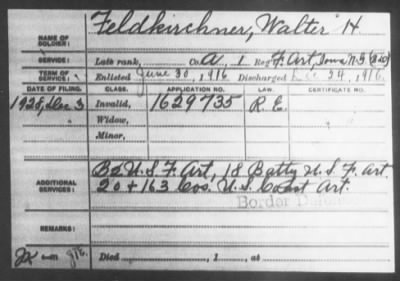 NAME OF SOLDIER: Feldkirchner, Walter H
SERVICE: Late rank, Co. A, 1 Reg't F. Art, Iowa N.G.
TERM OF SERVICE: Enlisted June 30, 1916 Discharged Dec 24, 1916.
DATE OF FILING. CLASS. APPLICATION NO. LAW. CERTIFICATE NO.
1928, Dec 3 Invalid, 1629735 R.E.
Widow,
Minor,
ADDITIONAL SERVICES: U.S. F. Art, 18 Batty U.S. F. Art.
20 + 163 Cos. U.S. Coast Art.
Border
REMARKS:
Died , 1 , at